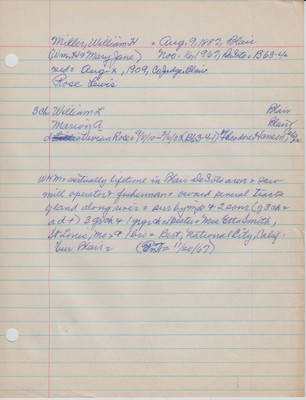 Miller, William H = Aug. 9, 1887, Blair
(Wm. H & Mary Jane) Nov. 16, 1967, DeSoto = B63-4
Aug 1909, Co Judge, Blair
Rose Lewis
3 ch William L Blair
Marion A Blair
Theodore Hansen
WHM = virtually lifetime in Blair-DeSoto area = saw
mill operator & fisherman = owned several tracts
of land along river = surv by wife & 2 sons (3 ch
a d +) 3 gch & 1 ggch = sister = Mrs. Etta Smith,
St. Louis, Mo. & 1 bro = Bert, National City, Calif =
bur Blair = (Ent = 11/20/67)